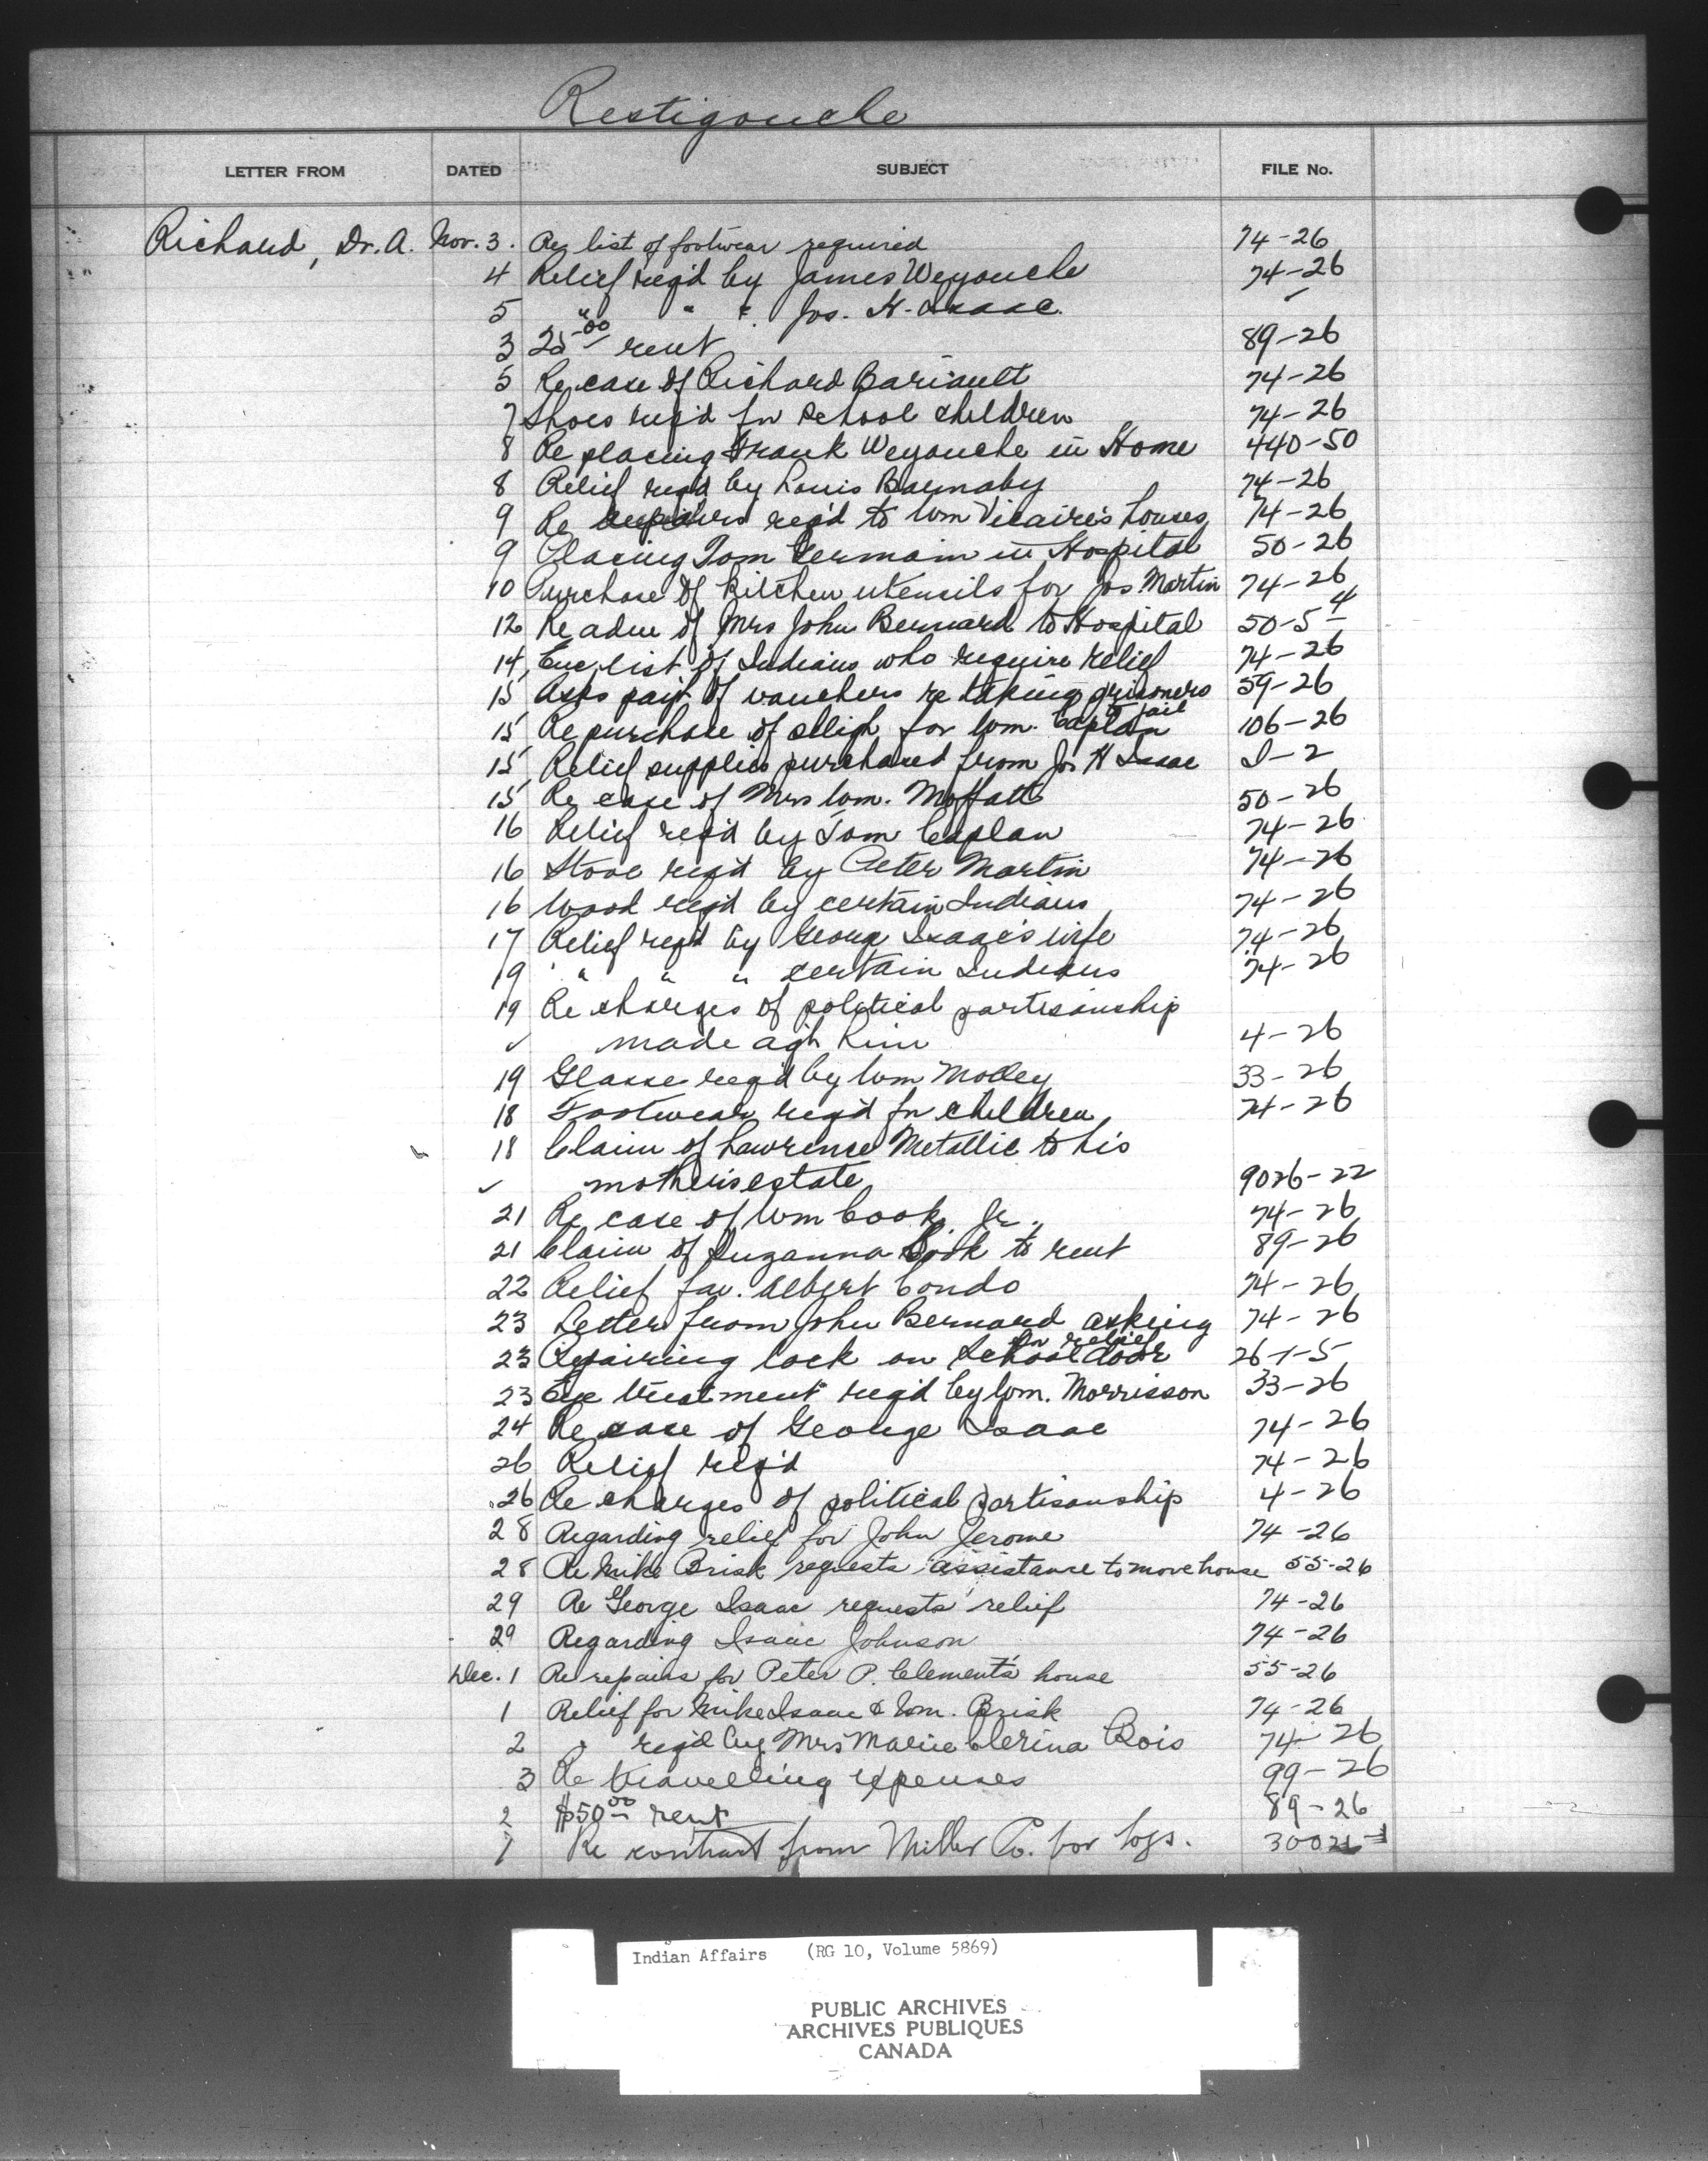 Restigouche
LETTER FROM DATED SUBJECT FILE No.
Richard, Dr. A. Nov. 3. Re list of footwear required 74-26
4 Relief req'd by James Weyouche 74-26
5 " " " Jos. H. Isaac ✓
3 25.00 rent 89-26
5 Re case of Richard Bariault 74-26
7 Shoes req'd for school children 74-26
8 Re placing Frank Weyouche in Home 440-50
8 Relief req'd by Louis Barnaby 74-26
9 Re repairs req'd to Wm Vicaire's houses 74-26
9 Placing Tom Germain in Hospital 50-26
10 Purchase of kitchen utensils for Jos. Martin 74-26
12 Re adm of Mrs John Bernard to Hospital 50-5-4
14 Enc. list of Indians who require relief 74-26
15 Asks payt of vouchers re taking prisoners 59-26
to jail
15 Re purchase of sleigh for Wm. Caplan 106-26
15 Relief supplies purchased from Jos H Isaac I-2
15 Re case of Mrs Wm. Moffatt 50-26
16 Relief req'd by Tom Caplan 74-26
16 Stove req'd by Peter Martin 74-26
16 Wood req'd by certain Indians 74-26
17 Relief req'd by George Isaac's wife 74-26
19 " " " certain Indians 74-26
19 Re charges of political partisanship
✓ made agst him 4-26
19 Glasse req'd by Wm Molley 33-26
18 Footwear req'd for children 74-26
18 Claim of Lawrence Metallic to his
✓ mother's estate 9026-22
21 Re case of Wm Cook, Jr. 74-26
21 Claim of Suzanna Cook to rent 89-26
22 Relief for Albert Condo 74-26
23 Letter from John Bernard asking 74-26
for relief
23 Repairing lock on School door 26-1-5
23 Eye treatment req'd by Wm. Morrisson 33-26
24 Re case of George Isaac 74-26
26 Relief req'd 74-26
26 Re charges of political partisanship 4-26
28 Regarding relief for John Jerome 74-26
28 Re Mike Brisk requests assistance to move house 55-26
29 Re George Isaac requests relief 74-26
29 Regarding Isaac Johnson 74-26
Dec. 1 Re repairs for Peter P. Clement's house 55-26
1 Relief for Mike Isaac & Wm. Brisk 74-26
2 " req'd by Mrs Marie Clerina Bois 74-26
3 Re travelling expenses 99-26
2 $50.00 rent 89-26
7 Re contract from Miller Co. for logs.
Indian Affairs (RG 10, Volume 5869)
PUBLIC ARCHIVES
ARCHIVES PUBLIQUES
CANADA